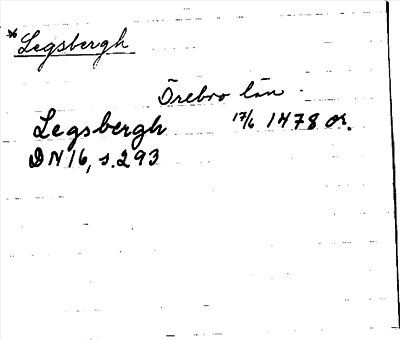 * Legsbergh
Örebro län
Legsbergh 17/6 1478 or.
DN 16, s. 293